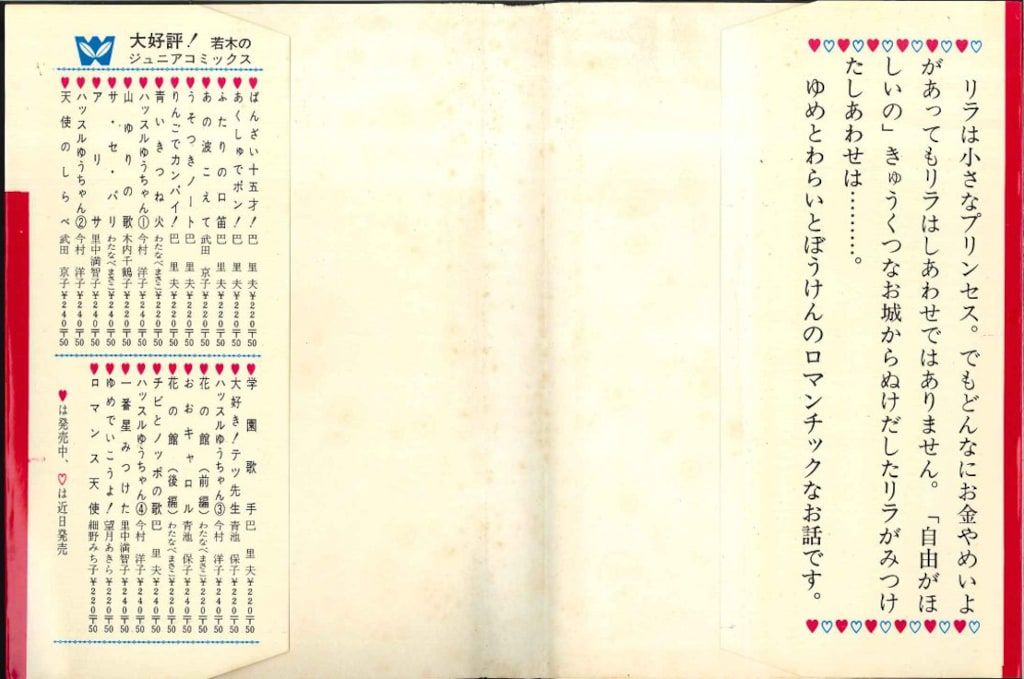 リラは小さなプリンセス。でもどんなにお金やめいよ
があってもリラはしあわせではありません。「自由がほ
しいの」きゅうくつなお城からぬけだしたリラがみつけ
たしあわせは…………。
ゆめとわらいとぼうけんのロマンチックなお話です。
大好評！若木の
ジュニアコミックス
♥ばんざい十五才！巴 里夫¥220〒50
♥あくしゅでポン！巴 里夫¥220〒50
♥ふたりの口笛 巴 里夫¥220〒50
♥あの波こえて 武田 京子¥240〒50
♥うそつきノート 巴 里夫¥220〒50
♥りんごでカンパイ！巴 里夫¥220〒50
♥青いきつね火 わたなべまさこ¥220〒50
♥ハッスルゆうちゃん① 今村 洋子¥240〒50
♥山ゆりの歌 木内千鶴子¥220〒50
♥サ・セ・パリ わたなべまさこ¥240〒50
♥アリサ 里中満智子¥240〒50
♥ハッスルゆうちゃん② 今村 洋子¥240〒50
♥天使のしらべ 武田 京子¥240〒50
♥学園歌手 巴 里夫¥220〒50
♥大好き！テツ先生 青池 保子¥220〒50
♥ハッスルゆうちゃん③ 今村 洋子¥240〒50
♥花の館（前編）わたなべまさこ¥220〒50
♥おおキャロル 青池 保子¥240〒50
♥花の館（後編）わたなべまさこ¥220〒50
♥チビとノッポの歌 巴 里夫¥240〒50
♥ハッスルゆうちゃん④ 今村 洋子¥240〒50
♥一番星みつけた 里中満智子¥220〒50
♥ゆめでいこうよ！望月あきら¥220〒50
♥ロマンス天使 細野みち子¥220〒50
♥は発売中、♡は近日発売